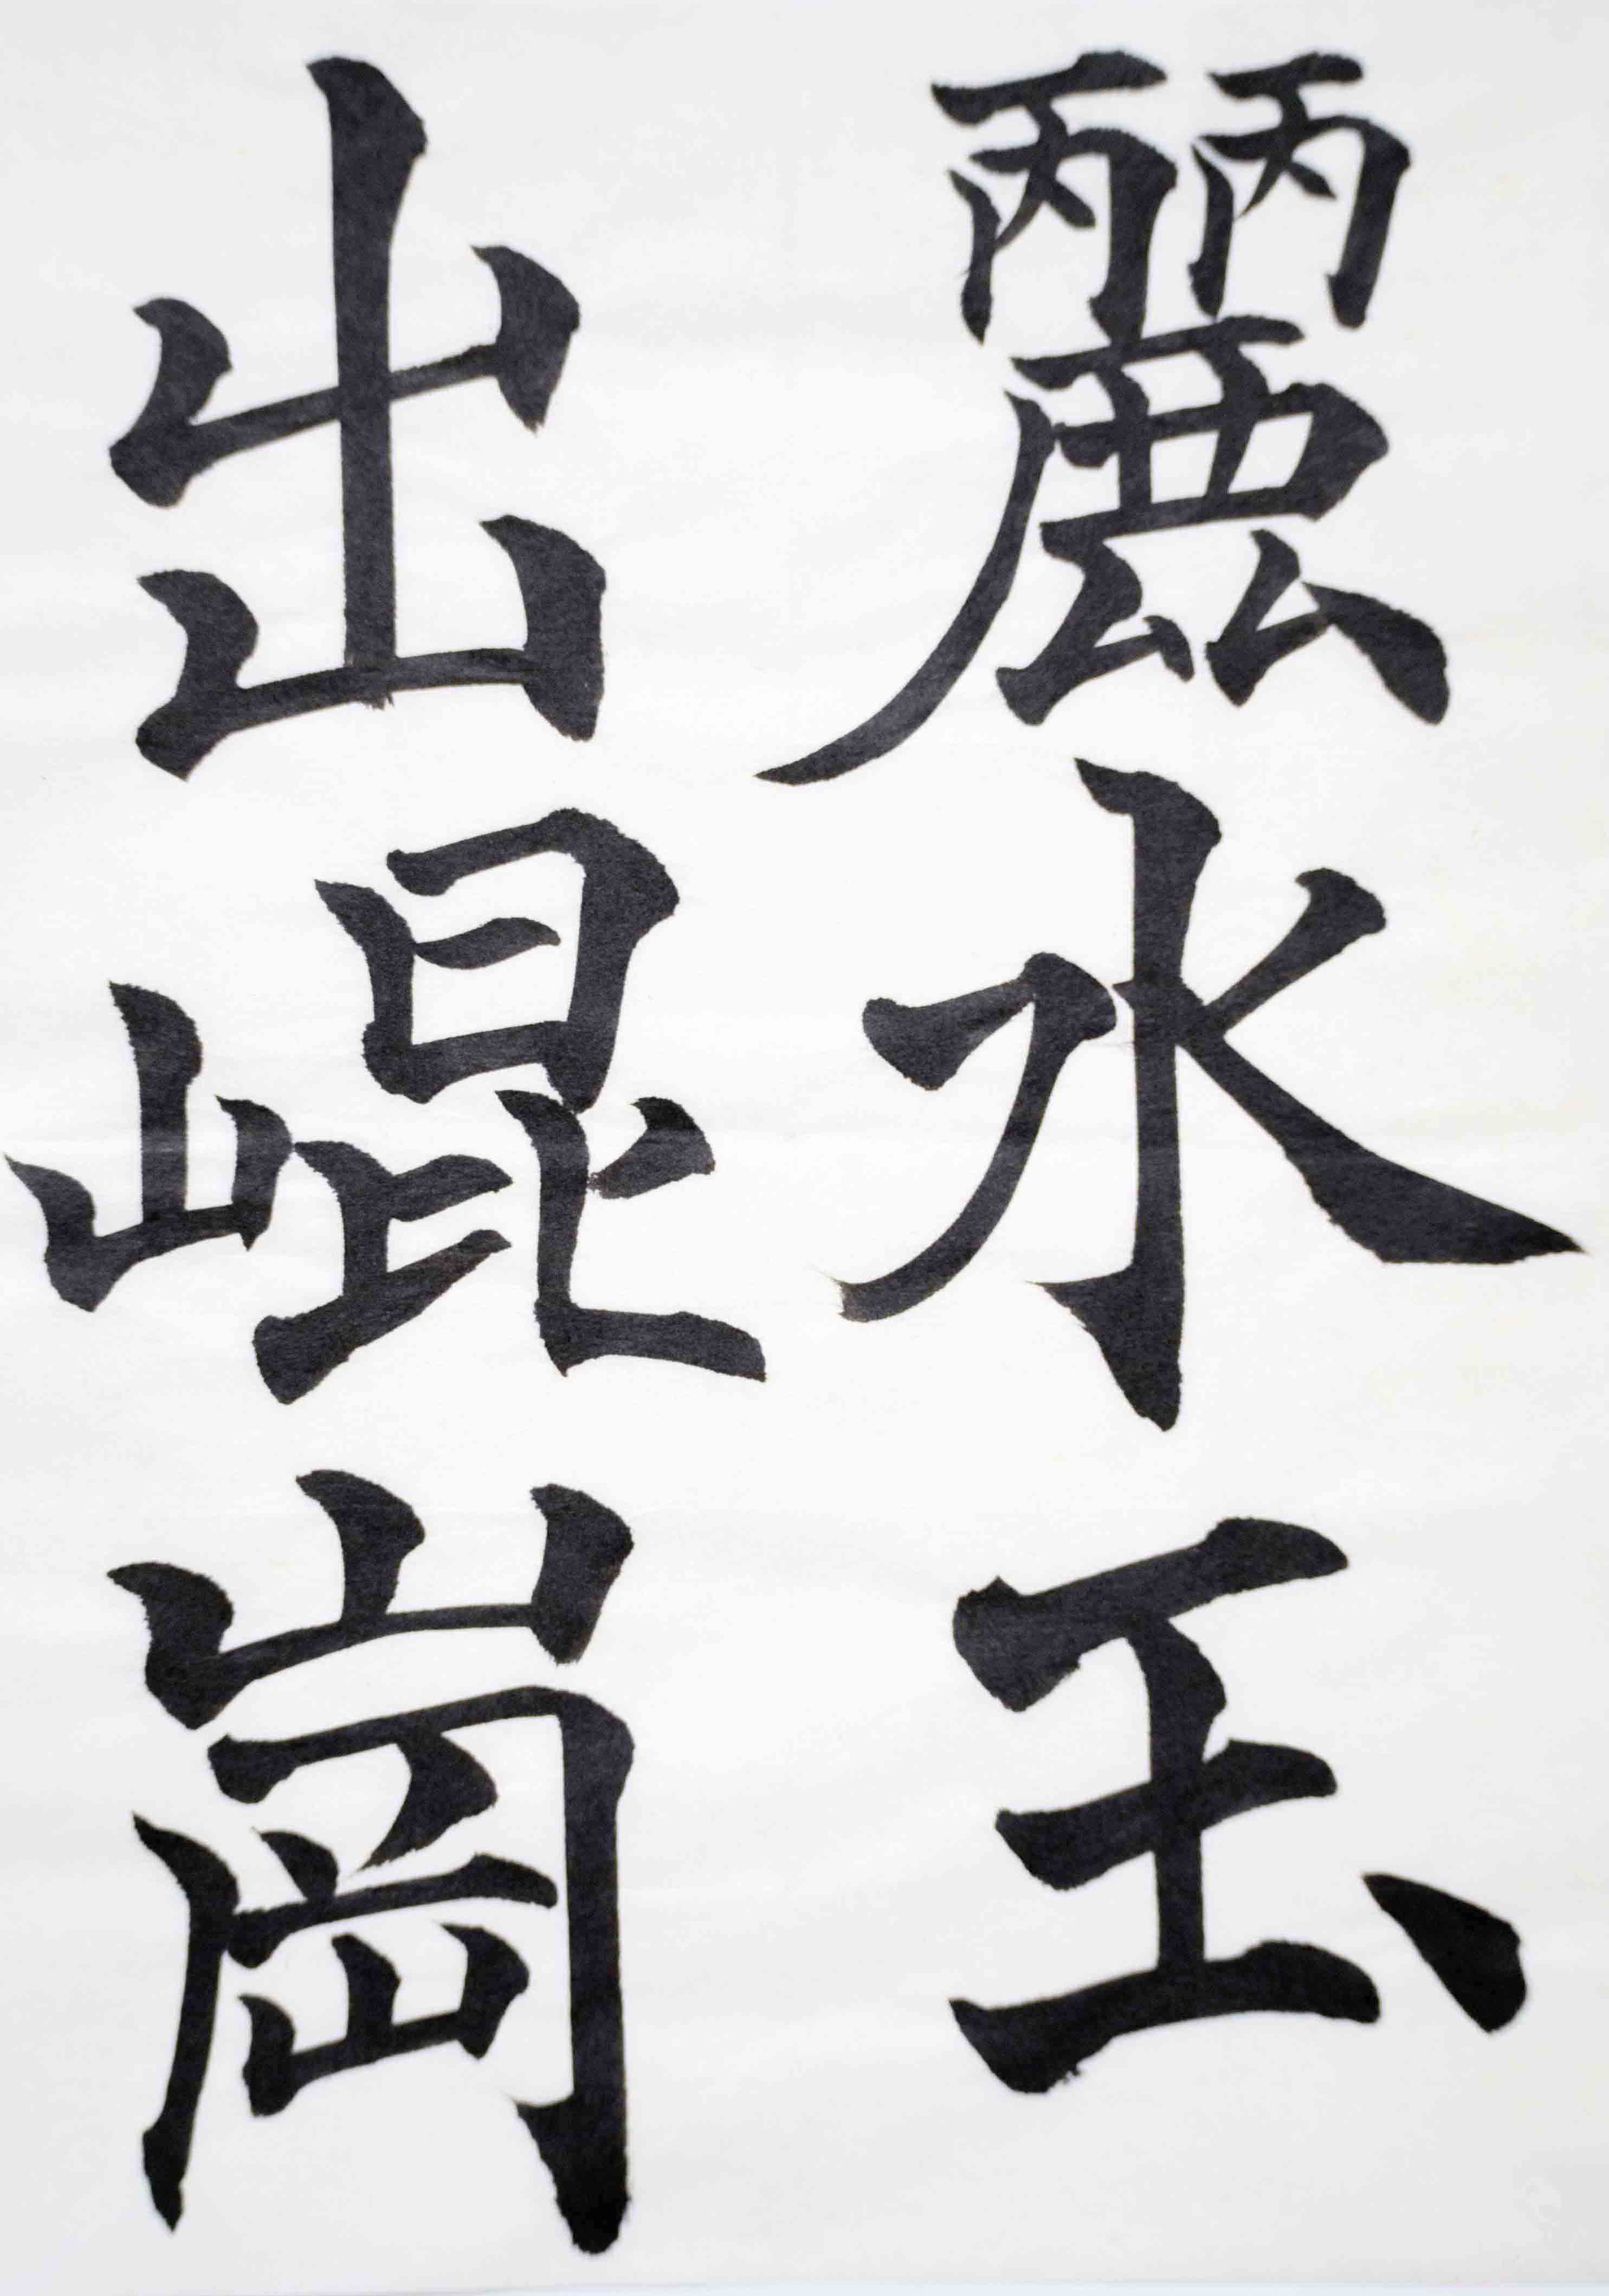 麗水玉
出崐崗